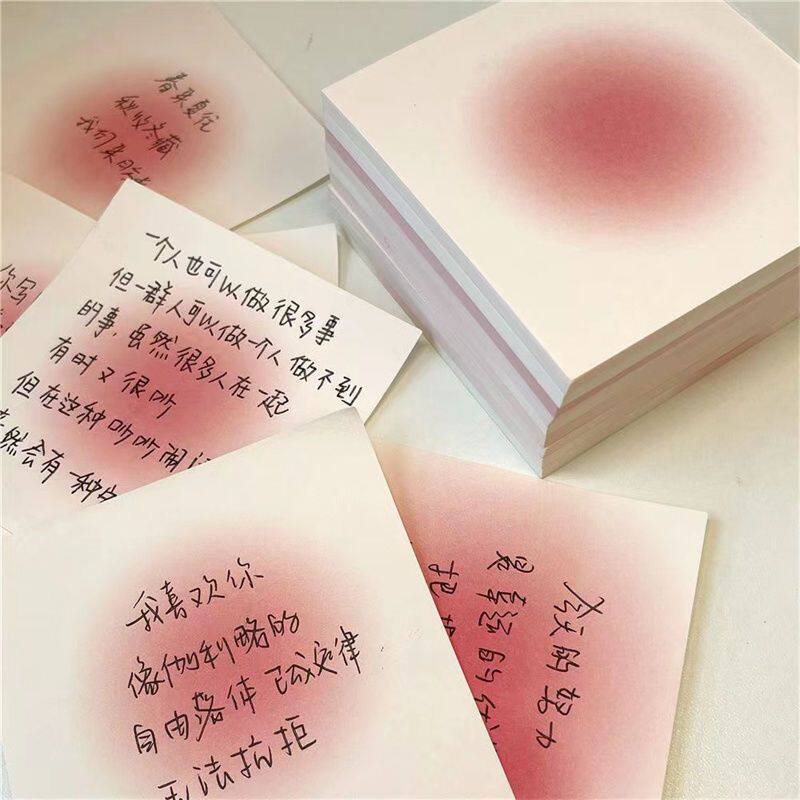 春来夏往
秋收冬藏
我们来日方长
你写
一个人也可以做很多事
但一群人可以做一个人做不到
的事,虽然很多人在一起
有时又很吵
但在这种吵吵闹
然会有一种
我喜欢你
像伽利略的
自由落体 已成定律
无法抗拒
的努力
是幸运的
把